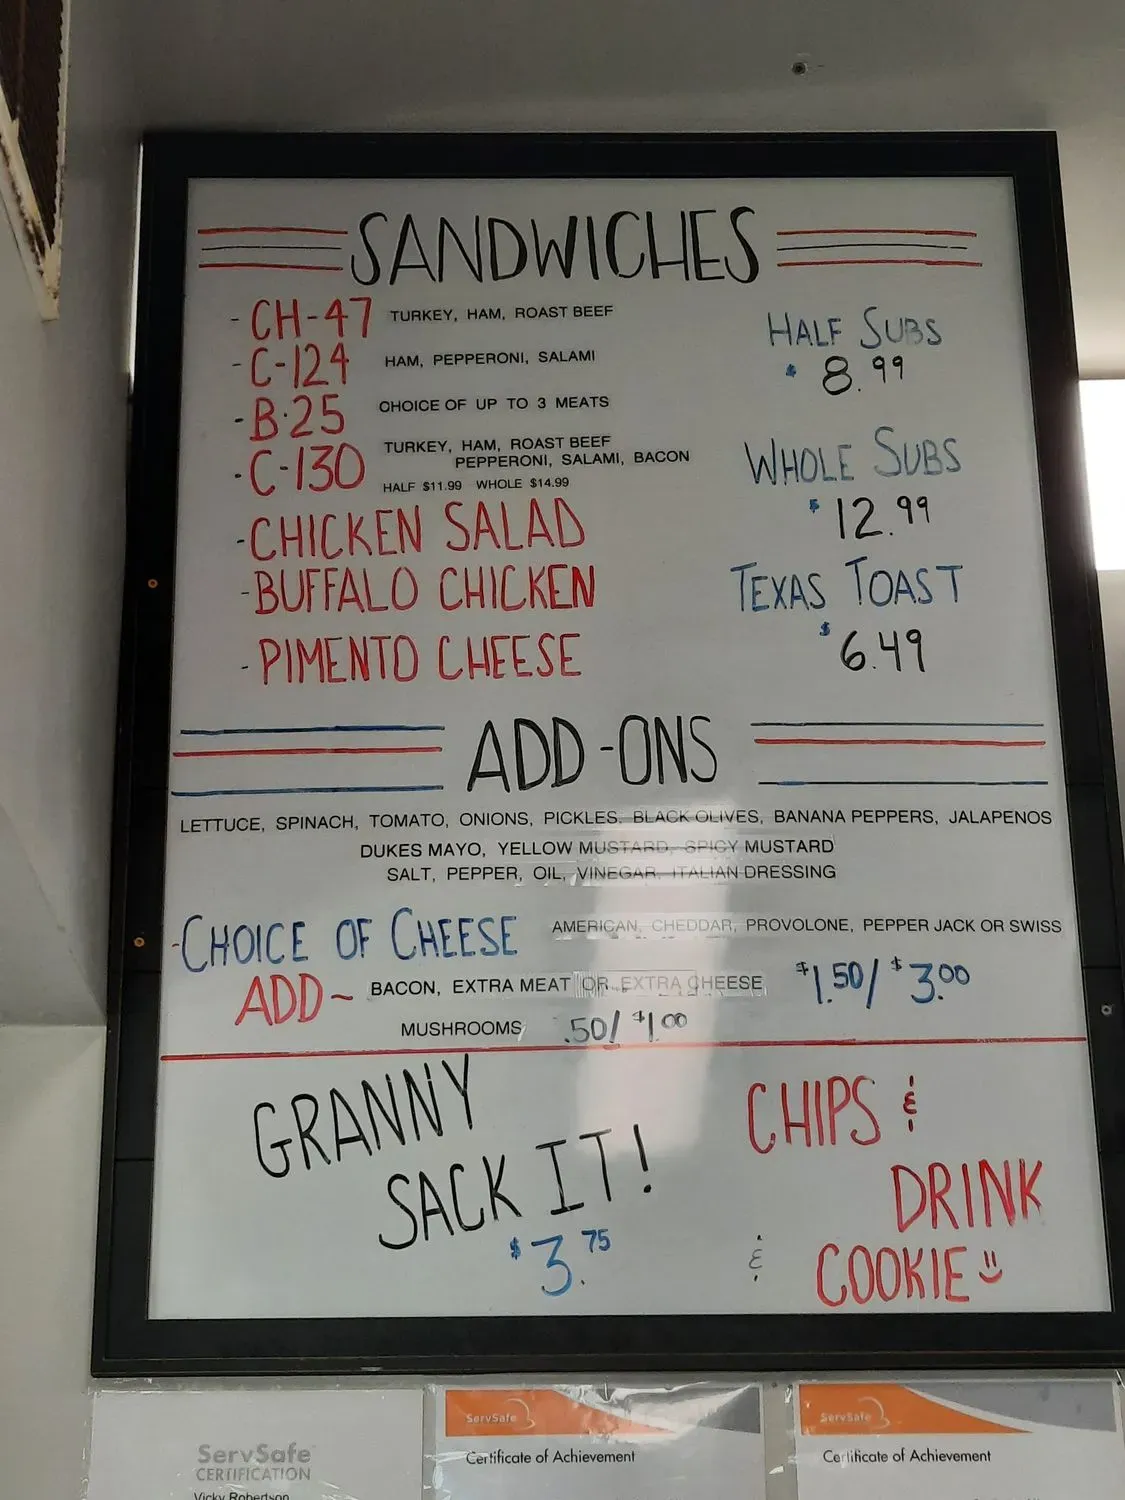 SANDWICHES
- CH-47 TURKEY, HAM, ROAST BEEF
- C-124 HAM, PEPPERONI, SALAMI
- B-25 CHOICE OF UP TO 3 MEATS
- C-130 TURKEY, HAM, ROAST BEEF
PEPPERONI, SALAMI, BACON
HALF $11.99 WHOLE $14.99
- CHICKEN SALAD
- BUFFALO CHICKEN
- PIMENTO CHEESE
HALF SUBS
$8.99
WHOLE SUBS
$12.99
TEXAS TOAST
$6.49
ADD-ONS
LETTUCE, SPINACH, TOMATO, ONIONS, PICKLES, BLACK OLIVES, BANANA PEPPERS, JALAPENOS
DUKES MAYO, YELLOW MUSTARD, SPICY MUSTARD
SALT, PEPPER, OIL, VINEGAR, ITALIAN DRESSING
-CHOICE OF CHEESE AMERICAN, CHEDDAR, PROVOLONE, PEPPER JACK OR SWISS
ADD~ BACON, EXTRA MEAT OR EXTRA CHEESE $1.50/$3.00
MUSHROOMS .50/$1.00
GRANNY
SACK IT!
$3.75
CHIPS &
DRINK
& COOKIE
ServSafe
CERTIFICATION
Vicky Robertson
ServSafe
Certificate of Achievement
ServSafe
Certificate of Achievement